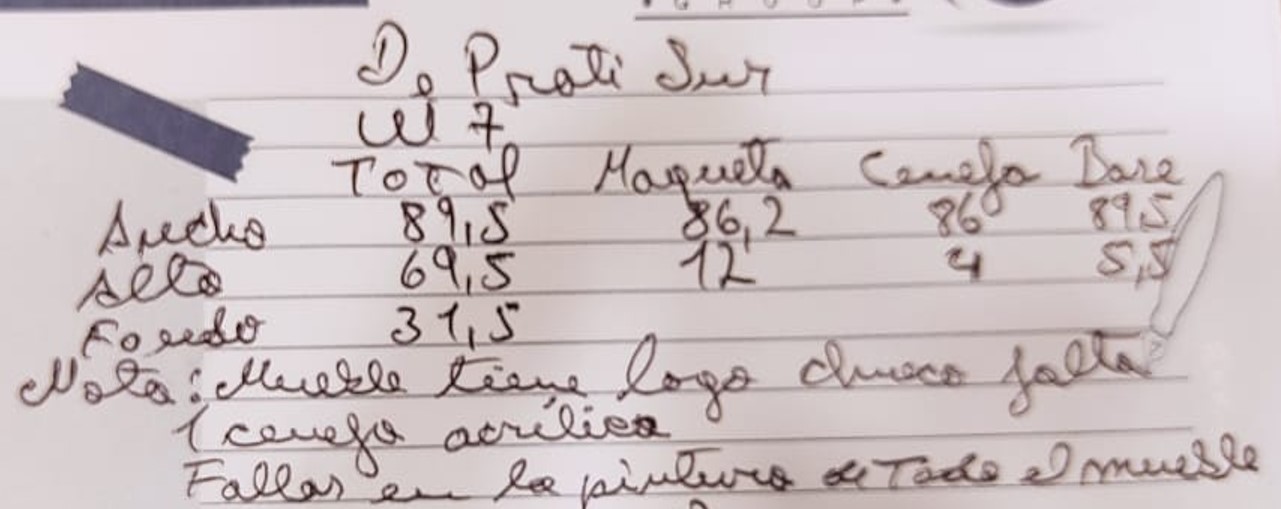 De Prati Sur
W 7
Total Maqueta Cenefa Base
Ancho 89,5 86,2 86 89,5
Alto 69,5 12 4 5,5
Fondo 31,5
Nota: Mueble tiene logo chueco falta
1 cenefa acrílica
Fallas en la pintura de Todo el mueble